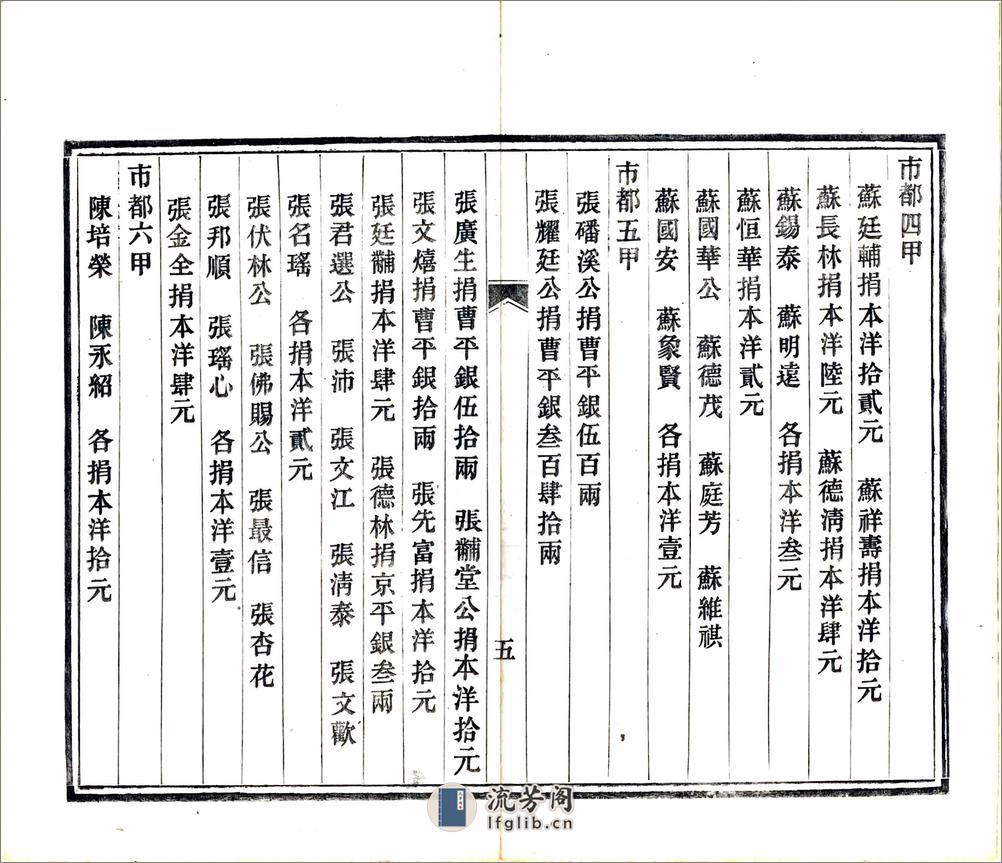 市都四甲
蘇廷輔捐本洋拾貳元　蘇祥壽捐本洋拾元
蘇長林捐本洋陸元　蘇德淸捐本洋肆元
蘇錫泰　蘇明遠　各捐本洋叁元
蘇恒華捐本洋貳元
蘇國華公　蘇德茂　蘇庭芳　蘇維祺
蘇國安　蘇象賢　各捐本洋壹元
市都五甲
張磻溪公捐曹平銀伍百兩
張耀廷公捐曹平銀叁百肆拾兩
五
張廣生捐曹平銀伍拾兩　張黼堂公捐本洋拾元
張文熺捐曹平銀拾兩　張先富捐本洋拾元
張廷黼捐本洋肆元　張德林捐京平銀叁兩
張君選公　張沛　張文江　張淸泰　張文歡
張名瑤　各捐本洋貳元
張伏林公　張佛賜公　張最信　張杏花
張邦順　張瑤心　各捐本洋壹元
張金全捐本洋肆元
市都六甲
陳培榮　陳永紹　各捐本洋拾元
流芳阁
lfglib.cn